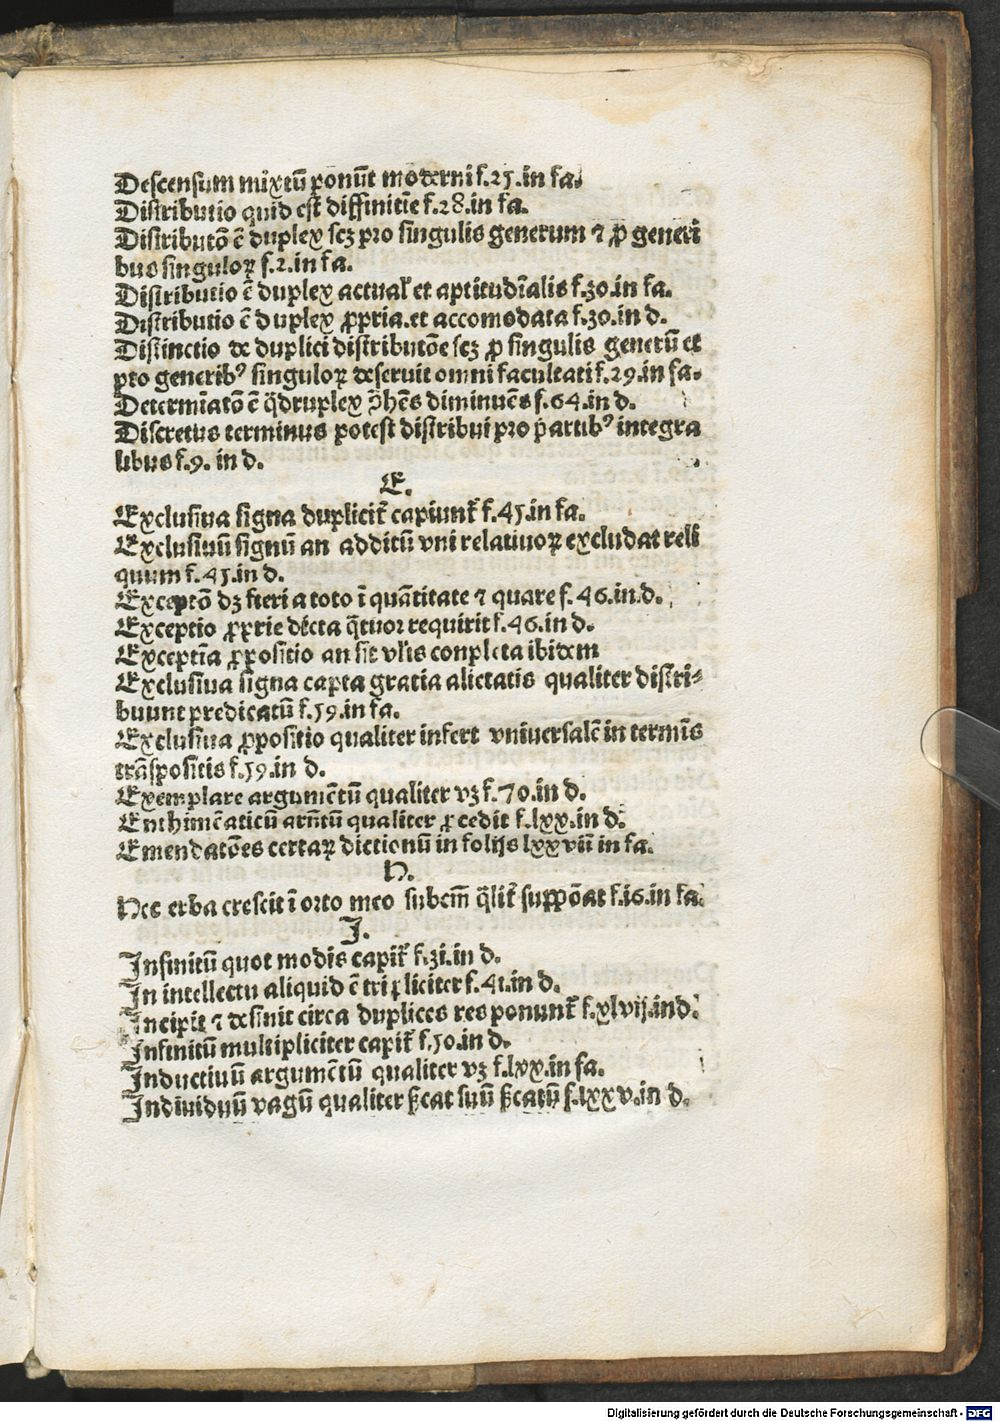 Descensum mixtū ponūt moderni f.25.in fa.
Distributio quid est diffinitīe f.28.in fa.
Distributō ē duplex scꝫ pro singulis generum ⁊ ꝓ generi
bus singuloꝝ f.2.in fa.
Distributio ē duplex actual' et aptitudīalis f.30.in fa.
Distributio ē duplex ꝓpria.et accomodata f.30.in d.
Distinctio de duplici distributōe scꝫ ꝓ singulis generū et
pro generibꝰ singuloꝝ deseruit omni facultati f.29.in fa.
Determīatō ē q̄druplex p̄hēs diminuēs f.64.in d.
Discretus terminus potest distribui pro ꝑartibꝰ integra
libus f.9. in d.
E.
Exclusiua signa duplicit̄ capiunt̄ f.45.in fa.
Exclusiuū signū an additū vni relatiuoꝝ excludat reli
quum f.45.in d.
Exceptō dꝫ fieri a toto ī quātitate ⁊ quare f.46.in.d.
Exceptio ꝓprie dēcta q̄tuor requirit f.46.in d.
Exceptīa ꝓpositio an sit vl'is conpleta ibidem
Exclusiua signa capta gratia alietatis qualiter distri-
buunt predicatū f.59.in fa.
Exclusiua ꝓpositio qualiter infert vniuersalē in termīs
trāspositis f.59.in d.
Exemplare argumētū qualiter vꝫ f.70.in d.
Enthimēaticū arn̄tū qualiter ꝓcedit f.lxx.in d.
Emendatōes certaꝝ dictionū in folijs lxxvii in fa.
H.
Hec erba crescit ī orto meo subcm̄ q̄lit̄ suppōat f.16.in fa.
I.
Infinitū quot modis capit̄ f.31.in d.
In intellectu aliquid ē tripliciter f.41.in d.
Incipit ⁊ desinit circa duplices res ponunt̄ f.xlvij.in d.
Infinitū multipliciter capit̄ f.50.in d.
Inductiuū argumētū qualiter vꝫ f.lxx.in fa.
Indiuiduū vagū qualiter s̄cat suū s̄catū f.lxxv.in d.
Digitalisierung gefördert durch die Deutsche Forschungsgemeinschaft - DFG